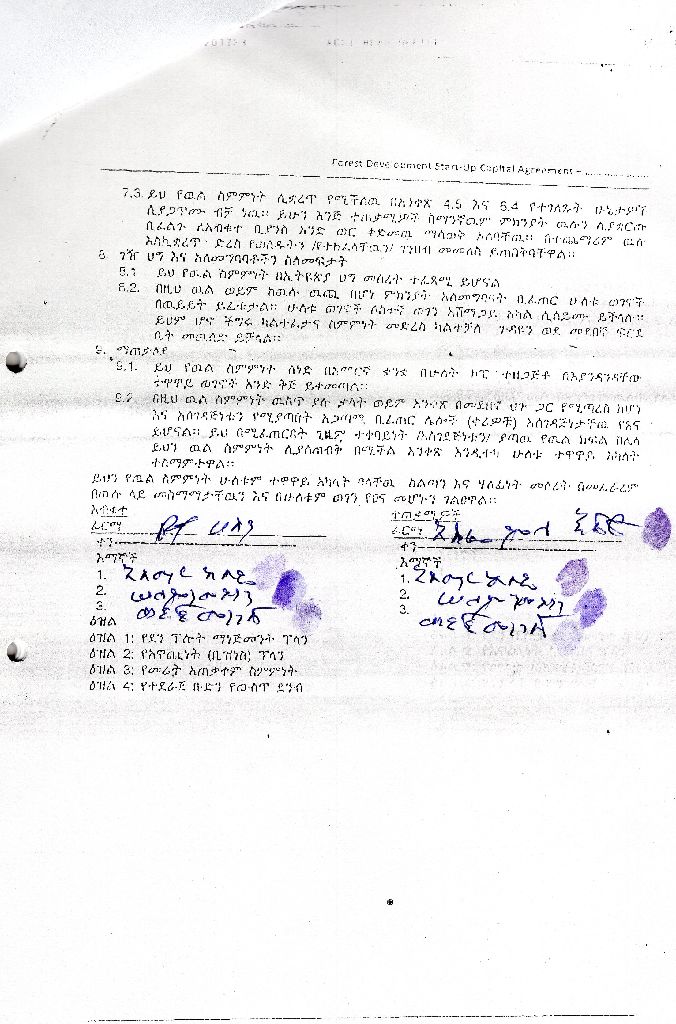 Forest Development Start-Up Capital Agreement -
7.3. ይህ የዉል ስምምነት ሊቋረጥ የሚችለዉ በአንቀጽ 4.5 እና 6.4 የተገለጹት ሁኔታዎች
ሲያጋጥሙ ብቻ ነዉ። ይሁን እንጅ ተጠቃሚዎች በማንኛዉም ምክንያት ዉሉን ሊያቋርጡ
ቢፈልጉ ለአብቁተ ቢያንስ አንድ ወር ቀድመዉ ማሳወቅ አለባቸዉ። በተጨማሪም ዉሉ
እስኪቋረጥ ድረስ የወሰዱትን /የተከፈላቸዉን/ ገንዘብ መመለስ ይጠበቅባቸዋል።
8. ገዥ ህግ እና አለመግባባቶችን ስለመፍታት
8.1 ይህ የዉል ስምምነት በኢትዮጵያ ህግ መሰረት ተፈጻሚ ይሆናል
8.2. በዚህ ዉል ወይም ከዉሉ ዉጪ በሆነ ምክንያት አለመግባባት ቢፈጠር ሁለቱ ወገኖች
በዉይይት ይፈቱታል። ሁለቱ ወገኖች ሶስተኛ ወገን አሸማጋይ አካል ሊሰይሙ ይችላሉ።
ይህም ሆኖ ችግሩ ካልተፈታና ስምምነት መድረስ ካልተቻለ ጉዳዩን ወደ መደበኛ ፍርድ
ቤት መዉሰድ ይቻላል።
9. ማጠቃለያ
9.1. ይህ የዉል ስምምነት ሰነድ በአማርኛ ቋንቋ በሁለት ኮፒ ተዘጋጅቶ በእያንዳንዳቸው
ተዋዋይ ወገኖች አንድ ቅጅ ይቀመጣል።
9.2. በዚህ የዉል ስምምነት ዉስጥ ያሉ ቃላት ወይም አንቀጽ በመደበኛ ህጉ ጋር የሚጣረስ ከሆነ
እና አስገዳጅነቱን የሚያጣበት አጋጣሚ ቢፈጠር ሌሎች (ተራዎች) አስገዳጅነታቸዉ የጸና
ይሆናል። ይህ በሚፈጠርበት ጊዜም ተቀባይነት /አስገዳጅነቱን/ ያጣዉ የዉል ክፍል በሌላ
ይህን ዉል ስምምነት ሊያስጠብቅ በሚችል አንቀጽ እንዲተካ ሁለቱ ተዋዋይ አካላት
ተስማምተዋል።
ይህን የዉል ስምምነት ሁለቱም ተዋዋይ አካላት ባላቸዉ ስልጣን እና ሃላፊነት መሰረት በመፈራረም
በዉሉ ላይ መስማማታቸዉን እና በሁለቱም ወገን የጸና መሆኑን ገልፀዋል።
አብቁተ
ተጠቃሚዎች
ፊርማ
ፊርማ
ቀን
ቀን
እማኞች
እማኞች
1.
1.
2.
2.
3.
3.
ዕዝል
ዕዝል 1: የደን ፕሎት ማኔጅመንት ፕላን
ዕዝል 2: የአዋጪነት (ቢዝነስ) ፕላን
ዕዝል 3: የመሬት አጠቃቀም ስምምነት
ዕዝል 4: የተደራጀ ቡድን የውስጥ ደንብ